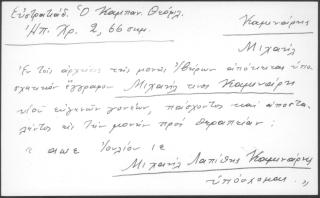 Εὐστρατιάδ. Ὁ Καμπαν. Θεόφιλ.
Ἠπ. Χρ. 2, 66 σημ.
Καμινάρης
Μιχαήλ
Ἐν τοῖς ἀρχείοις τῆς μονῆς Ἰβήρων ἀπόκειται ὑπο-
σχετικὸν ἔγγραφον Μιχαὴλ τινος Καμινάρη
υἱοῦ εὐγενῶν γονέων, πάσχοντος καὶ ἀποστα-
λέντος εἰς τὴν μονὴν πρὸς θεραπείαν:
αωε Ἰουλίου ιε
Μιχαὴλ Λαπίθης Καμινάρης
ὑπόσχομαι.